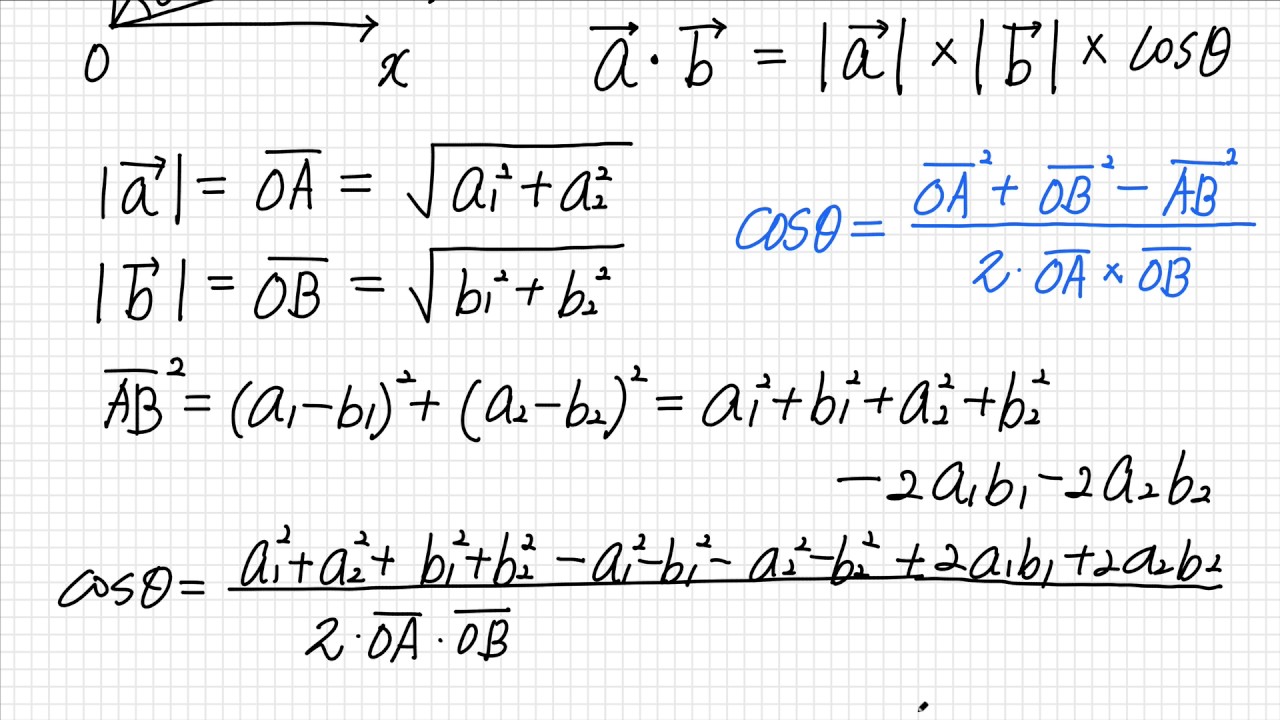 0 x
a⃗ · b⃗ = |a⃗| × |b⃗| × cosθ
|a⃗| = O̅A̅ = √(a₁² + a₂²)
cosθ = (O̅A̅² + O̅B̅² − A̅B̅²) / (2 · O̅A̅ × O̅B̅)
|b⃗| = O̅B̅ = √(b₁² + b₂²)
A̅B̅² = (a₁−b₁)² + (a₂−b₂)² = a₁² + b₁² + a₂² + b₂²
−2a₁b₁ −2a₂b₂
cosθ = (a₁² + a₂² + b₁² + b₂² − a₁² − b₁² − a₂² − b₂² + 2a₁b₁ + 2a₂b₂) / (2 · O̅A̅ · O̅B̅)